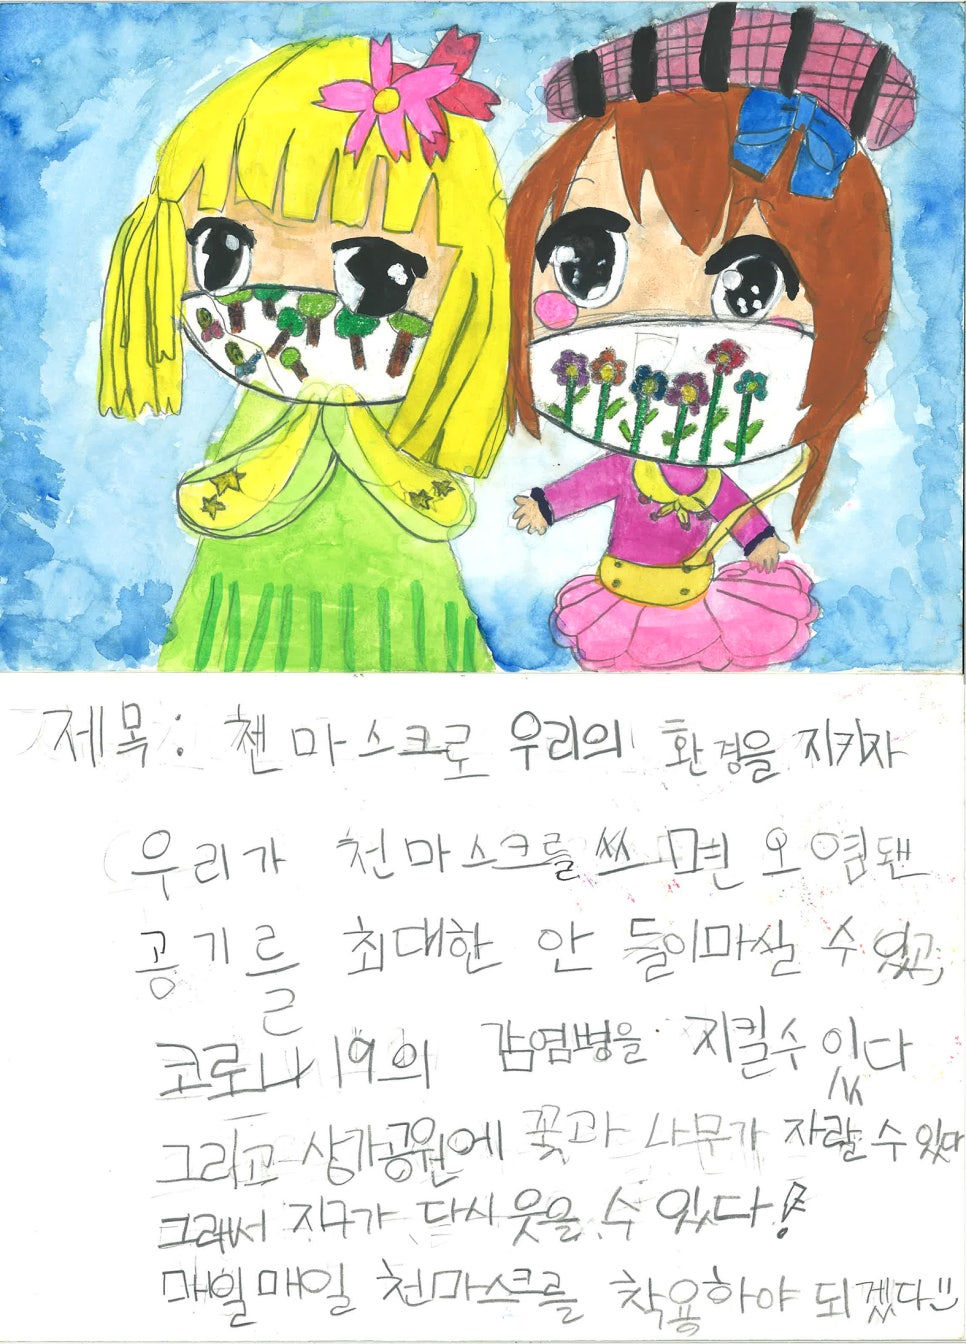 제목: 첸 마스크로 우리의 환경을 지키자
우리가 천마스크를 쓰면 오염됀
공기를 최대한 안 들이마실 수 있고,
코로나19의 감염병을 지킬수 있다
그리고 상가공원에 꽃과 나무가 자랄 수 있다
그래서 지구가 다시 웃을 수 있다!
매일매일 천마스크를 착용하야 되겠다!!